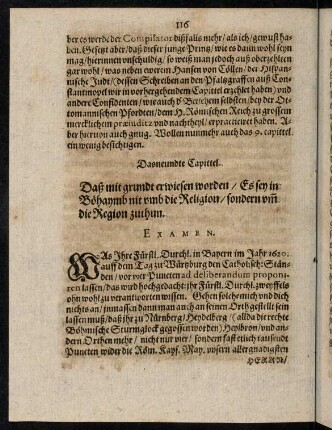 116
ber es werde der Compilator dißfalls mehr/ als ich/ gewust ha-
ben. Gesetzt aber/ daß dieser junge Printz/ wie es dann wohl seyn
mag/ hierinnen vnschuldig/ so weiß man jedoch auß oberzehlten
gar wohl/ was neben ewerm Hansen von Cöllen/ der Hispan-
nische Judt/ (dessen Schreiben an den Pfaltzgraffen auß Con-
stantinopel wir im vorhergehendem Capittel erzehlet haben) vnd
andere Confidenten/ wie auch d' Betlehem selbsten/ bey der Ot-
tomannischen Pfordten/ dem H. Römischen Reich zu grossem
mercklichem præiuditz vnd nachtheyl/ erpracticiret haben. A-
ber hieruon auch gnug. Wollen nunmehr auch das 9. capittel
ein wenig besichtigen.
Das neundte Capittel.
Daß mit grundt erwiesen worden/ Es sey in
Böhaymb nit vmb die Religion/ sondern vm̄
die Region zuthun.
EXAMEN.
WAs Ihre Fürstl. Durchl. in Bayern im Jahr 1620.
auff dem Tag zu Würtzburg den Catholisch: Stän-
den/ vor vier Puncten ad deliberandum proponi-
ren lassen/ das wird hochgedacht: ihr Fürstl. Durchl. zweyffels
ohn wohl zu verantworten wissen. Gehen solche mich vnd dich
nichts an/ immassen dann man auch an seinen Orth gestellt sein
lassen muß/ daß ihr zu Nürnberg/ Heydelberg/ (allda die rechte
Böhmische Sturmglock gegossen worden) Heylbron/ vnd an-
dern Orthen mehr/ nicht nur vier/ sondern fast etlich tausendt
Puncten wider die Röm. Kays. May. vnsern allergnädigsten
HERRN/